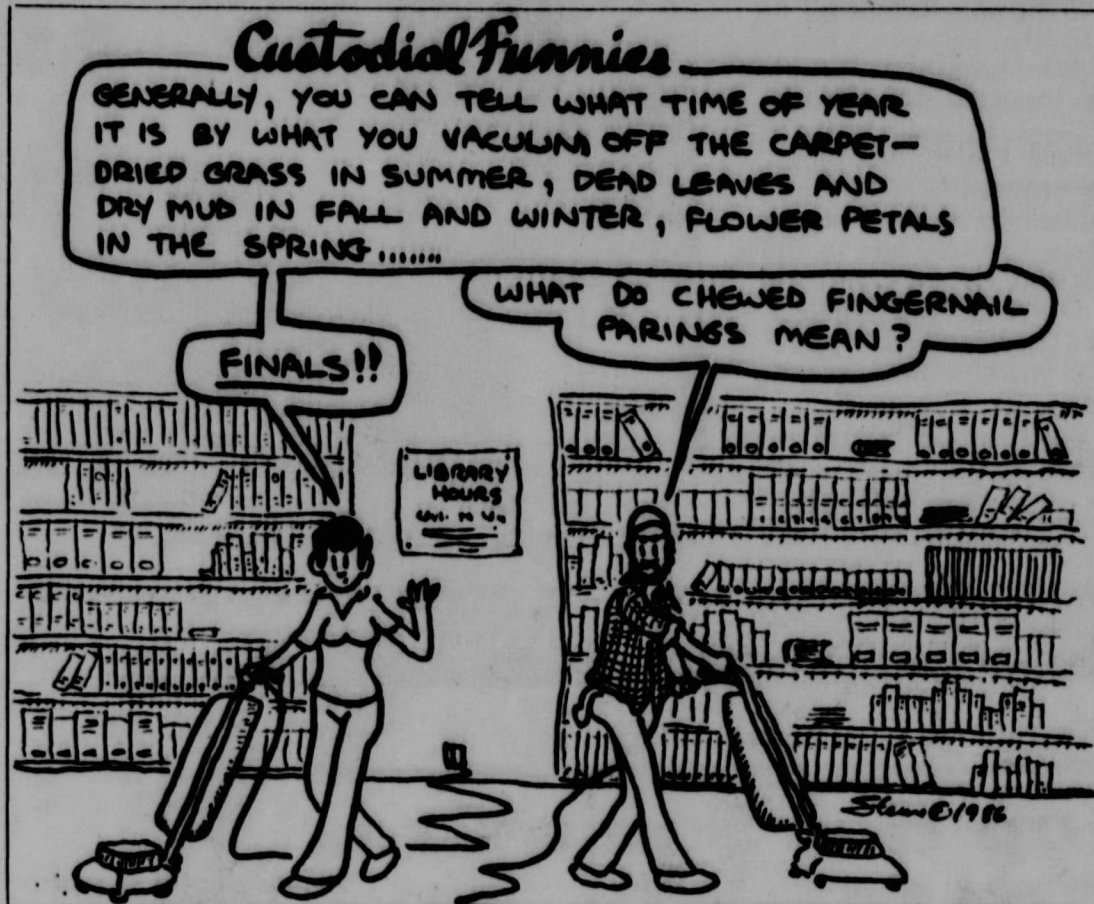 Custodial Funnies
GENERALLY, YOU CAN TELL WHAT TIME OF YEAR
IT IS BY WHAT YOU VACUUM OFF THE CARPET—
DRIED GRASS IN SUMMER, DEAD LEAVES AND
DRY MUD IN FALL AND WINTER, FLOWER PETALS
IN THE SPRING.......
WHAT DO CHEWED FINGERNAIL
PARINGS MEAN?
FINALS!!
LIBRARY
HOURS
©1986